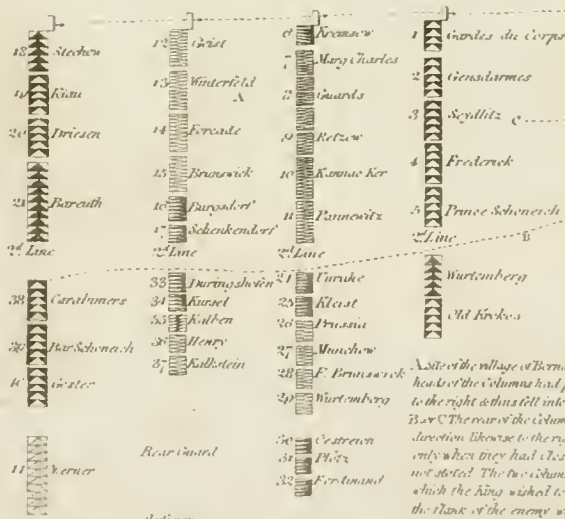 18 Stechen
19 Kiau
20 Driesen
21 Bareuth
2d Line
38 Carabiniers
39 Bar Schoneich
40 Gester
41 Werner
12 Geist
13 Winterfeld
A
14 Forcade
15 Brunswick
16 Burgsdorf
17 Schenkendorf
2d Line
33 Duringshofen
34 Kursel
35 Kalben
36 Henry
37 Kalkstein
Rear Guard
6 Kremsow
7 Marg Charles
8 Guards
9 Retzow
10 Kannac Ker
11 Pannewitz
2d Line
24 Unruhe
25 Kleist
26 Prussia
27 Munchow
28 F. Brunswick
29 Wurtemberg
30 Oestreien
31 Plotz
32 Ferdinand
1 Gardes du Corps
2 Gensdarmes
3 Seydlitz
C
4 Frederick
5 Prince Schoneich
2d Line
B
Wurtemberg
Old Krokow
A site of the village of Berna
heads of the Columns had p
to the right & thus fell into
B or C The rear of the Colum
direction likewise to the rig
only when they had clos
not stated The two Colum
which the King wished to
the flank of the enemy w